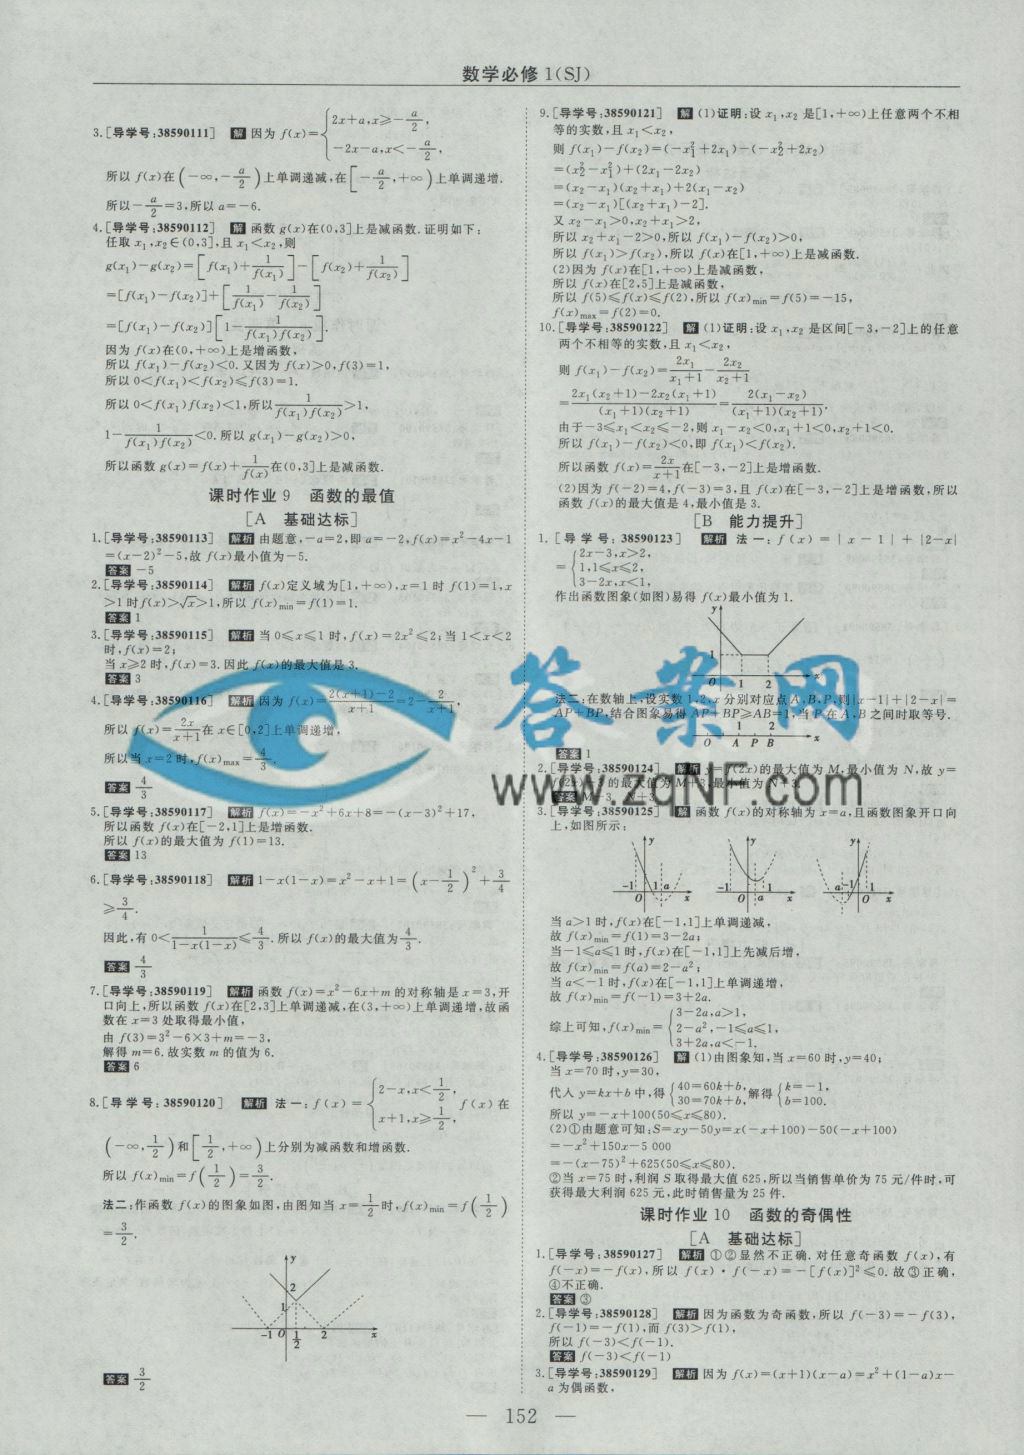 数学必修1(SJ)
3.[导学号:38590111] 解 因为 f(x)={2x+a,x≥-a/2,
-2x-a,x<-a/2,
所以 f(x)在(-∞,-a/2)上单调递减,在[-a/2,+∞)上单调递增.
所以-a/2=3,所以 a=-6.
4.[导学号:38590112] 解 函数 g(x)在(0,3]上是减函数.证明如下:
任取 x₁,x₂∈(0,3],且 x₁<x₂,则
g(x₁)-g(x₂)=[f(x₁)+1/f(x₁)]-[f(x₂)+1/f(x₂)]
=[f(x₁)-f(x₂)]+[1/f(x₁)-1/f(x₂)]
=[f(x₁)-f(x₂)][1-1/f(x₁)f(x₂)].
因为 f(x)在(0,+∞)上是增函数,
所以 f(x₁)-f(x₂)<0.又因为 f(x)>0,f(3)=1,
所以 0<f(x₁)<f(x₂)≤f(3)=1.
所以 0<f(x₁)f(x₂)<1,所以1/f(x₁)f(x₂)>1,
1-1/f(x₁)f(x₂)<0.所以 g(x₁)-g(x₂)>0,
所以函数 g(x)=f(x)+1/f(x)在(0,3]上是减函数.
课时作业 9 函数的最值
[A 基础达标]
1.[导学号:38590113] 解析 由题意,-a=2,即 a=-2,f(x)=x²-4x-1
=(x-2)²-5,故 f(x)最小值为-5.
答案 -5
2.[导学号:38590114] 解析 f(x)定义域为[1,+∞),x=1 时 f(1)=1,x
>1 时f(x)>√x>1,所以 f(x)min=f(1)=1.
答案 1
3.[导学号:38590115] 解析 当 0≤x≤1 时,f(x)=2x²≤2;当 1<x<2
时,f(x)=2;
当 x≥2 时,f(x)=3.因此 f(x)的最大值是 3.
答案 3
4.[导学号:38590116] 解析 因为 f(x)=2(x+1)-2/x+1=2-2/x+1,
所以 f(x)=2x/x+1在 x∈[0,2]上单调递增,
所以当 x=2 时,f(x)max=4/3.
答案 4/3
5.[导学号:38590117] 解析 f(x)=-x²+6x+8=-(x-3)²+17,
所以函数 f(x)在[-2,1]上是增函数.
所以 f(x)的最大值为 f(1)=13.
答案 13
6.[导学号:38590118] 解析 1-x(1-x)=x²-x+1=(x-1/2)²+3/4
≥3/4.
因此,有 0<1/1-x(1-x)≤4/3.所以 f(x)的最大值为4/3.
答案 4/3
7.[导学号:38590119] 解析 函数 f(x)=x²-6x+m 的对称轴是 x=3,开
口向上,所以函数 f(x)在[2,3]上单调递减,在(3,+∞)上单调递增,故函
数在 x=3 处取得最小值,
由 f(3)=3²-6×3+m=-3,
解得 m=6.故实数 m 的值为 6.
答案 6
8.[导学号:38590120] 解析 法一:f(x)={2-x,x<1/2,
x+1,x≥1/2, f(x)在
(-∞,1/2)和[1/2,+∞)上分别为减函数和增函数.
所以 f(x)min=f(1/2)=3/2.
法二:作函数 f(x)的图象如图,由图知当 x=1/2时,f(x)min=f(1/2)
=3/2.
y
2
1
-1 O 1/2 2 x
答案 3/2
9.[导学号:38590121] 解 (1)证明:设 x₁,x₂ 是[1,+∞)上任意两个不相
等的实数,且 x₁<x₂,
则 f(x₁)-f(x₂)=(-x₁²+2x₁)-(-x₂²+2x₂)
=(x₂²-x₁²)+(2x₁-2x₂)
=(x₂-x₁)(x₂+x₁)+2(x₁-x₂)
=(x₂-x₁)[(x₂+x₁)-2].
又 x₂-x₁>0,x₂+x₁>2,
所以 x₂+x₁-2>0,所以 f(x₁)-f(x₂)>0,
所以 f(x₁)>f(x₂),所以 f(x)在[1,+∞)上是减函数.
(2)因为 f(x)在[1,+∞)上是减函数,
所以 f(x)在[2,5]上是减函数,
所以 f(5)≤f(x)≤f(2),所以 f(x)min=f(5)=-15,
f(x)max=f(2)=0.
10.[导学号:38590122] 解 (1)证明:设 x₁,x₂ 是区间[-3,-2]上的任意
两个不相等的实数,且 x₁<x₂,
则 f(x₁)-f(x₂)=2x₁/x₁+1-2x₂/x₂+1
=2x₁(x₂+1)-2x₂(x₁+1)/(x₁+1)(x₂+1)=2(x₁-x₂)/(x₁+1)(x₂+1).
由于-3≤x₁<x₂≤-2,则 x₁-x₂<0,x₁+1<0,x₂+1<0.
所以 f(x₁)-f(x₂)<0,即 f(x₁)<f(x₂).
所以函数 f(x)=2x/x+1在[-3,-2]上是增函数.
(2)因为 f(-2)=4,f(-3)=3,且 f(x)在[-3,-2]上是增函数,所以
函数 f(x)的最大值是 4,最小值是 3.
[B 能力提升]
1.[导学号:38590123] 解析 法一:f(x)=|x-1|+|2-x|
={2x-3,x>2,
1,1≤x≤2,
3-2x,x<1,
作出函数图象(如图)易得 f(x)最小值为 1.
y
1
O 1 2 x
法二:在数轴上,设实数 1,2,x 分别对应点 A,B,P,则|x-1|+|2-x|=
AP+BP,结合图象易得 AP+BP≥AB=1,当 P 在 A,B 之间时取等号.
1 2
O A P B x
答案 1
2.[导学号:38590124] 解析 y=f(2x)的最大值为 M,最小值为 N,故 y=
答案 M+3 N+3
3.[导学号:38590125] 解 函数 f(x)的对称轴为 x=a,且函数图象开口向
上,如图所示:
y y y
-1 O 1 a x -1 O a 1 x a -1 O 1 x
当 a>1 时,f(x)在[-1,1]上单调递减,
故 f(x)min=f(1)=3-2a;
当-1≤a≤1 时,f(x)在[-1,1]上先减后增,
故 f(x)min=f(a)=2-a²;
当 a<-1 时,f(x)在[-1,1]上单调递增,
故 f(x)min=f(-1)=3+2a.
综上可知,f(x)min={3-2a,a>1,
2-a²,-1≤a≤1,
3+2a,a<-1.
4.[导学号:38590126] 解 (1)由图象知,当 x=60 时,y=40;
当 x=70 时,y=30,
代入 y=kx+b 中,得{40=60k+b,30=70k+b,解得{k=-1,b=100.
所以 y=-x+100(50≤x≤80).
(2)①由题意可知:S=xy-50y=x(-x+100)-50(-x+100)
=-x²+150x-5 000
=-(x-75)²+625(50≤x≤80).
②当 x=75 时,利润 S 取得最大值 625,所以当销售单价为 75 元/件时,可
获得最大利润 625 元,此时销售量为 25 件.
课时作业 10 函数的奇偶性
[A 基础达标]
1.[导学号:38590127] 解析 ①②显然不正确.对任意奇函数 f(x),有
f(-x)=-f(x),所以 f(x)·f(-x)=-[f(x)]²≤0.故③正确,
④不正确.
答案 ③
2.[导学号:38590128] 解析 因为函数为奇函数,所以 f(-3)=-f(3),
f(-1)=-f(1),而 f(3)>f(1),
所以 f(-3)<f(-1).
答案 f(-3)<f(-1)
3.[导学号:38590129] 解析 因为 f(x)=(x+1)(x-a)=x²+(1-a)x-
a 为偶函数,
— 152 —
答案网
www.zqNF.com